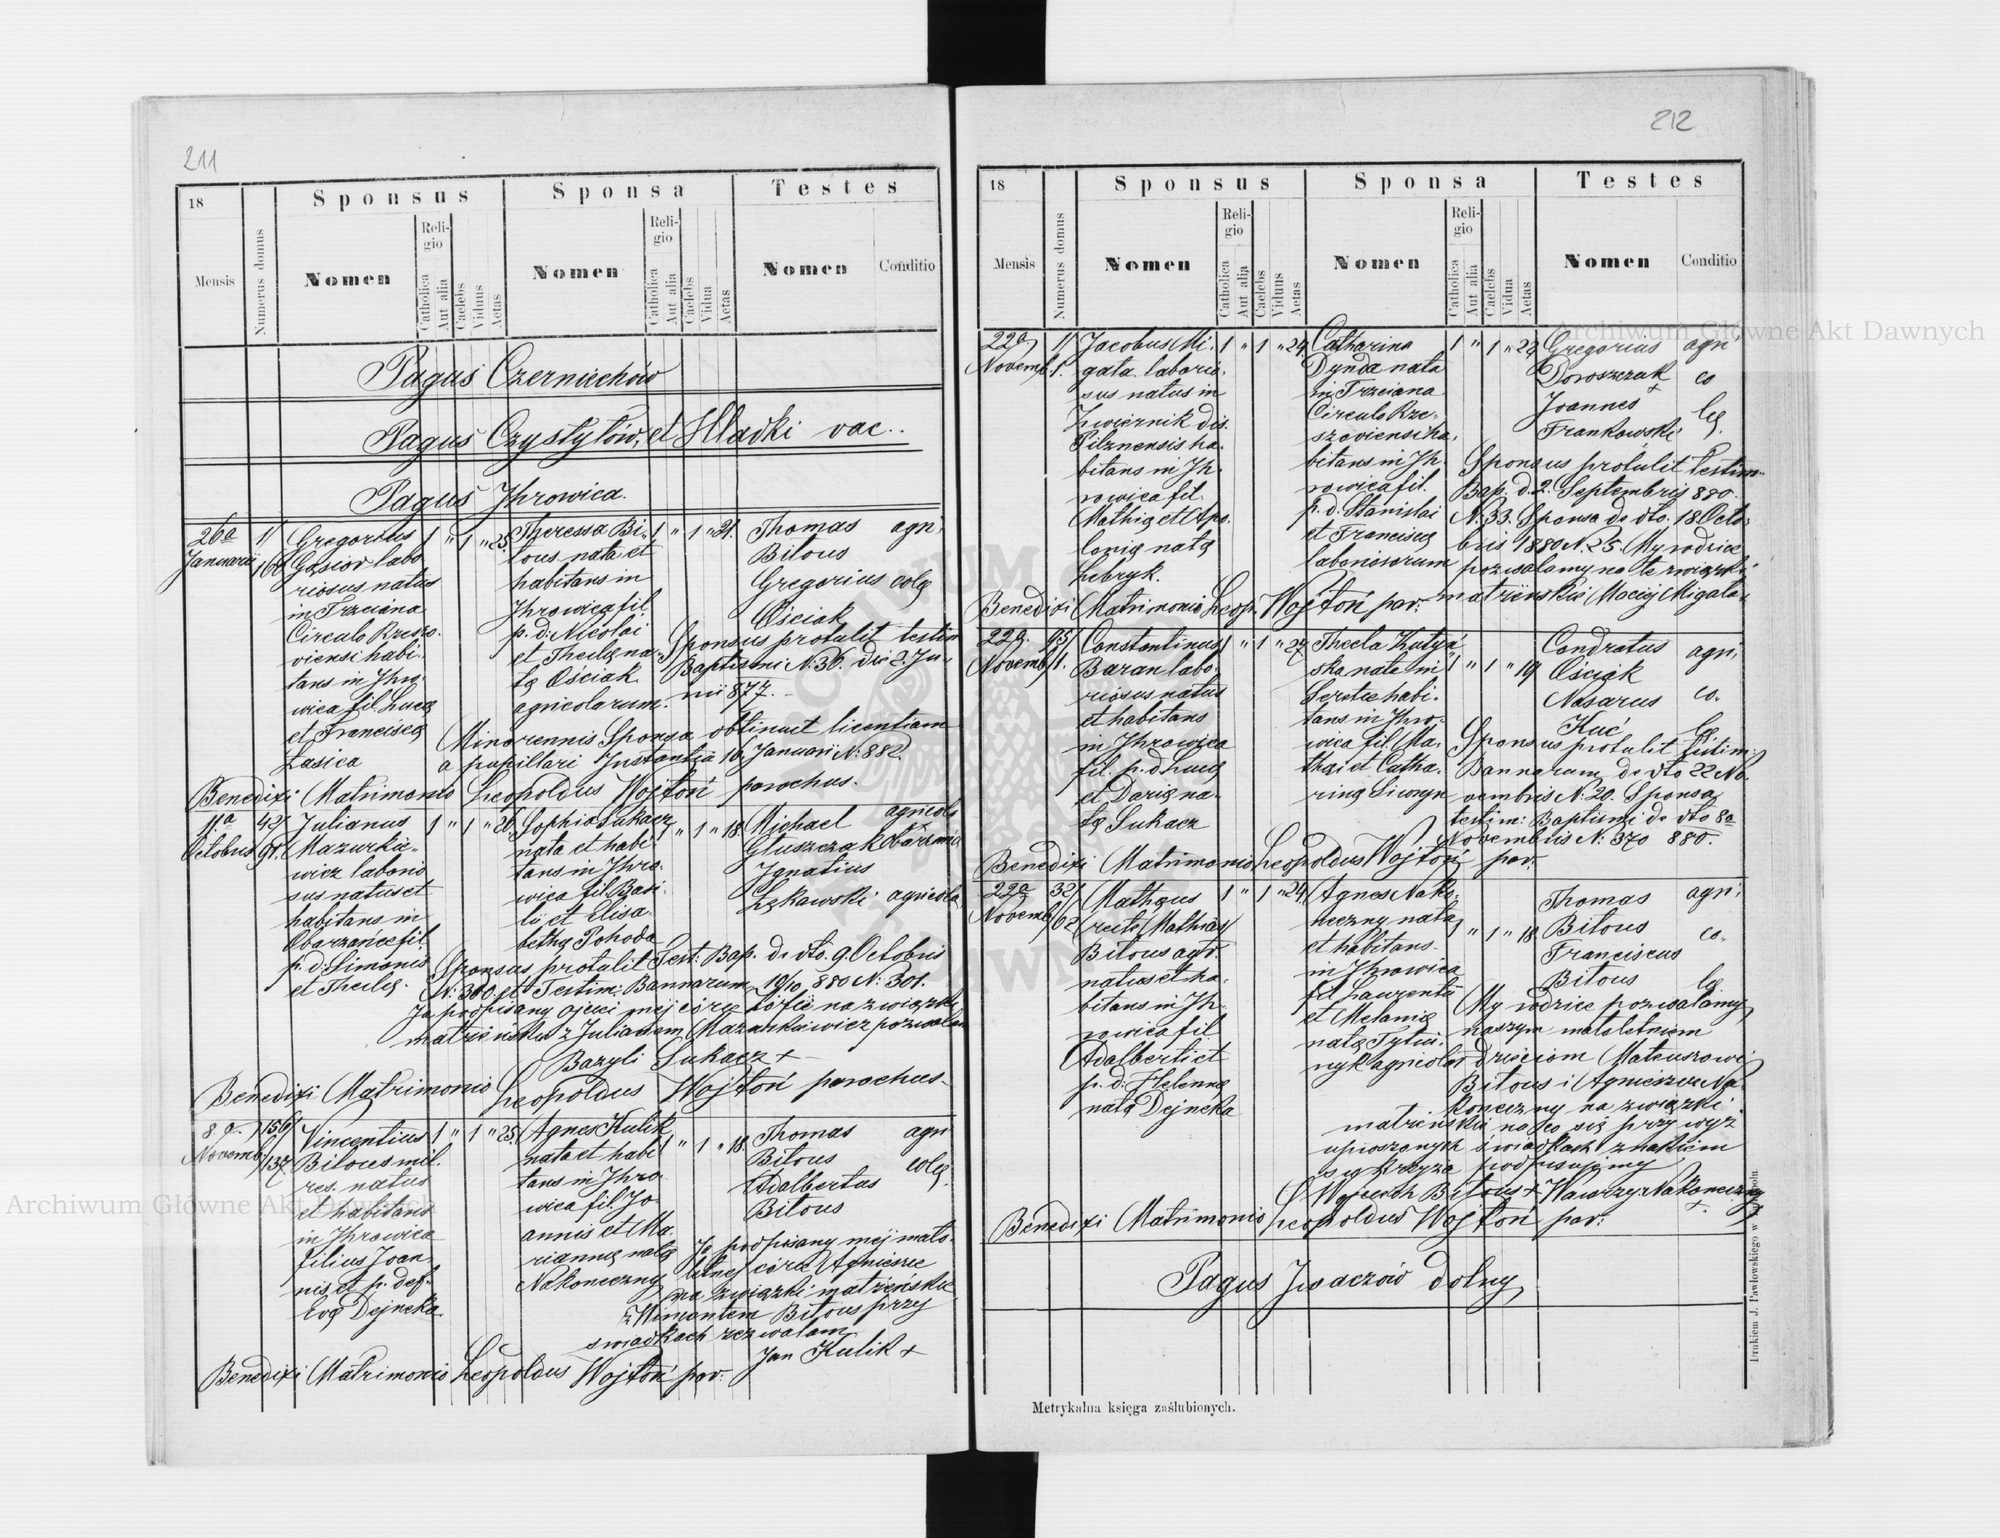 211
18
Sponsus
Sponsa
Testes
Mensis
Numerus domus
Nomen
Religio
Catholica
Aut alia
Caelebs
Viduus
Aetas
Nomen
Religio
Catholica
Aut alia
Caelebs
Vidua
Aetas
Nomen
Conditio
Pagus Czerniechów
Pagus Czystyłów, et Hladki vac..
Pagus Ihrowica.
26a
Januarii
Gregorius
Gąsior labo
riosus natus
in Trzciana
Circulo Rzeszo-
viensi habi-
tans in Ihro-
wica fil. Lucę
et Franciscę
Łasica
1 " 1 " 25
Theressa Bi-
lous nata et
habitans in
Ihrowica fil.
p. d. Nicolai
et Theclę na-
tę Ościak
agricolarum.
1 " 1 " 21.
Thomas agri,
Bilous
Gregorius colę
Ościak
Sponsus protulit testim
Baptismi N. 36. dto 2. Ju-
nii 877.
Minorennis Sponsa obtinuit licentiam
a pupillari Instantia 16. Januarii N: 882.
Benedixi Matrimonio Leopoldus Wojtoń parochus.
11.a
Octobris
42/
91.
Julianus
Mazurkie-
wicz laborio
sus natus et
habitans in
Obarzańce fil.
p. d. Simonis
et Theclę.
1 " 1 " 26
Sophia Łukacz
nata et habi
tans in Ihro-
wica fil. Basi-
lii et Elisa-
bethę Pohoda
1 " 1 " 18
Michael agricola
Głuszczak Obarzańce
Ignatius
Łękawski agricola
Sponsus protulit Test. Bap. de dto. 9. Octobris
N: 360. et Testim: Bannorum 10/10 880 N: 301.
Ja podpisany ojciec mej córce Zofii na związki
matrzeńskie z Julianem Mazurkiewicz pozwalam
Bazyli Łukacz +
Benedixi Matrimonio Leopoldus Wojtoń parochus.
8 a.
Novemb
156/
137
Vincentius
Bilous mil.
res. natus
et habitans
in Ihrowica
filius Joan-
nis et p. def.
Evę Dejneka
1 " 1 " 25.
Agnes Kulik
nata et habi
tans in Ihro
wica fil. Jo
annis et Ma-
riannę natę
Nakoneczny
1 " 1 " 18.
Thomas agri
Bilous
Adalbertus colę.
Bilous
Ja podpisany mej mało-
letnej córce Agnieszce
na związki matrzeńskie
z Wincentem Bilous przy
swiadkach zezwalam
Jan Kulik +
Benedixi Matrimonio Leopoldus Wojtoń par.
212
18
Sponsus
Sponsa
Testes
Mensis
Numerus domus
Nomen
Religio
Catholica
Aut alia
Caelebs
Viduus
Aetas
Nomen
Religio
Catholica
Aut alia
Caelebs
Vidua
Aetas
Nomen
Conditio
22a
Novemb.
Jacobus Mi-
gala laborio-
sus natus in
Zwiernik dis.
Pilznensis ha-
bitans in Ih-
rowica fil.
Mathię et Apo-
lonię natę
Hebryk.
1 " 1 " 24
Catharina
Dynda nata
in Trzciana
Circulo Rze-
szoviensi ha-
bitans in Ih-
rowica fil.
p. d. Stanislai
et Franciscę
laboriosorum
1 " 1 " 22
Gregorius agri
Doroszczak co
+
Joannes
Frankowski lę.
Sponsus protulit testim.
Bap. d. 2. Septembris 880.
N. 33. Sponsa de dto. 18. Octo-
bris 1880 N. 25. My rodzice
pozwalamy na te związki
matrzeńskie Maciej Migala.
Benedixi Matrimonio Leop. Wojtoń par.
22a.
Novemb.
95/
1.
Constantinus
Baran labo-
riosus natus
et habitans
in Ihrowica
fil. p. d. Lucę
et Darię na-
tę Łukacz
1 " 1 " 27
Thecla Kutyń
ska nata in
Seretce habi-
tans in Ihro-
wica fil. Ma-
thęi et Catha-
rinę Siwryn
1 " 1 " 19
Condratus agri,
Ościak
Nasarus co.
Kuć lę.
Sponsus protulit testim:
Bannorum de dto 22 No-
vembris N: 20. Sponsa
testim: Baptismi de dto 8a
Novembris N: 370 880.
Benedixi Matrimonio Leopoldus Wojtoń par.
22a
Novemb
32/
62
Mathęus
(recte Mathias)
Bilous agr.
natus et ha-
bitans in Ih-
rowica fil
Adalberti et
p. d. Helennę
natę Dejneka
1 " 1 " 24
Agnes Nako-
neczny nata
et habitans
in Ihrowica
fil. Laurentii
et Melanię
natę Tytu-
nyk agricolar
1 " 1 " 18.
Thomas agri,
Bilous
Franciscus co.
Bilous lę
My rodzice pozwalamy
naszym małoletniem
dzieciom Mateuszowi
Bilous i Agnieszce Na-
koneczny na związki
matrzeńskie na co się przy wyż
uproszonych świadkach znakiem
s. krzyża podpisujemy
Wojciech Bilous + Wawrzy. Nakoneczny
+
Benedixi Matrimonio Leopoldus Wojtoń par:
Pagus Iwaczów dolny
Metrykalna księga zaślubionych.
Drukiem J. Pawłowskiego w
Archiwum Główne Akt Dawnych
Archiwum Główne Akt Dawnych